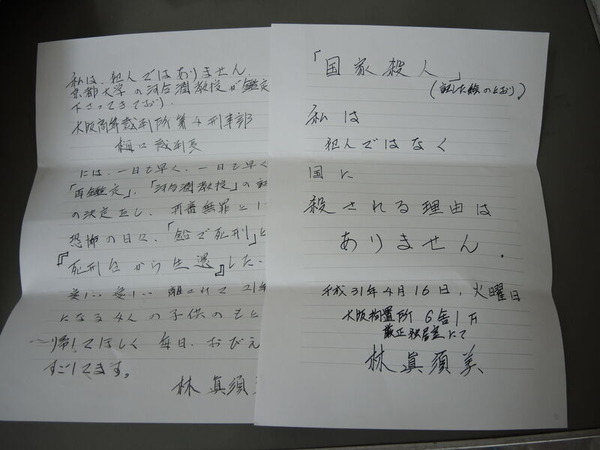 私は、犯人ではありません.
京都大学の河合潤教授が鑑定
下さってきており.
大阪高等裁判所第4刑事部
樋口裁判長
には、一日も早く、一日も早く
「再鑑定」、「河合潤教授」の
の決定をし、再審無罪と
恐怖の日々、「冤で死刑」と
『死刑台から生還』した
愛しい、愛しい 21年
になる4人の子供のもとに
帰してほしく 毎日、おびえ
すごしてます。
林 眞須
「国家殺人」
私は
犯人ではなく
国に
殺される理由は
ありません.
平成31年4月16日、火曜日
大阪拘置所 6舎1
厳正独居室にて
林 眞須美